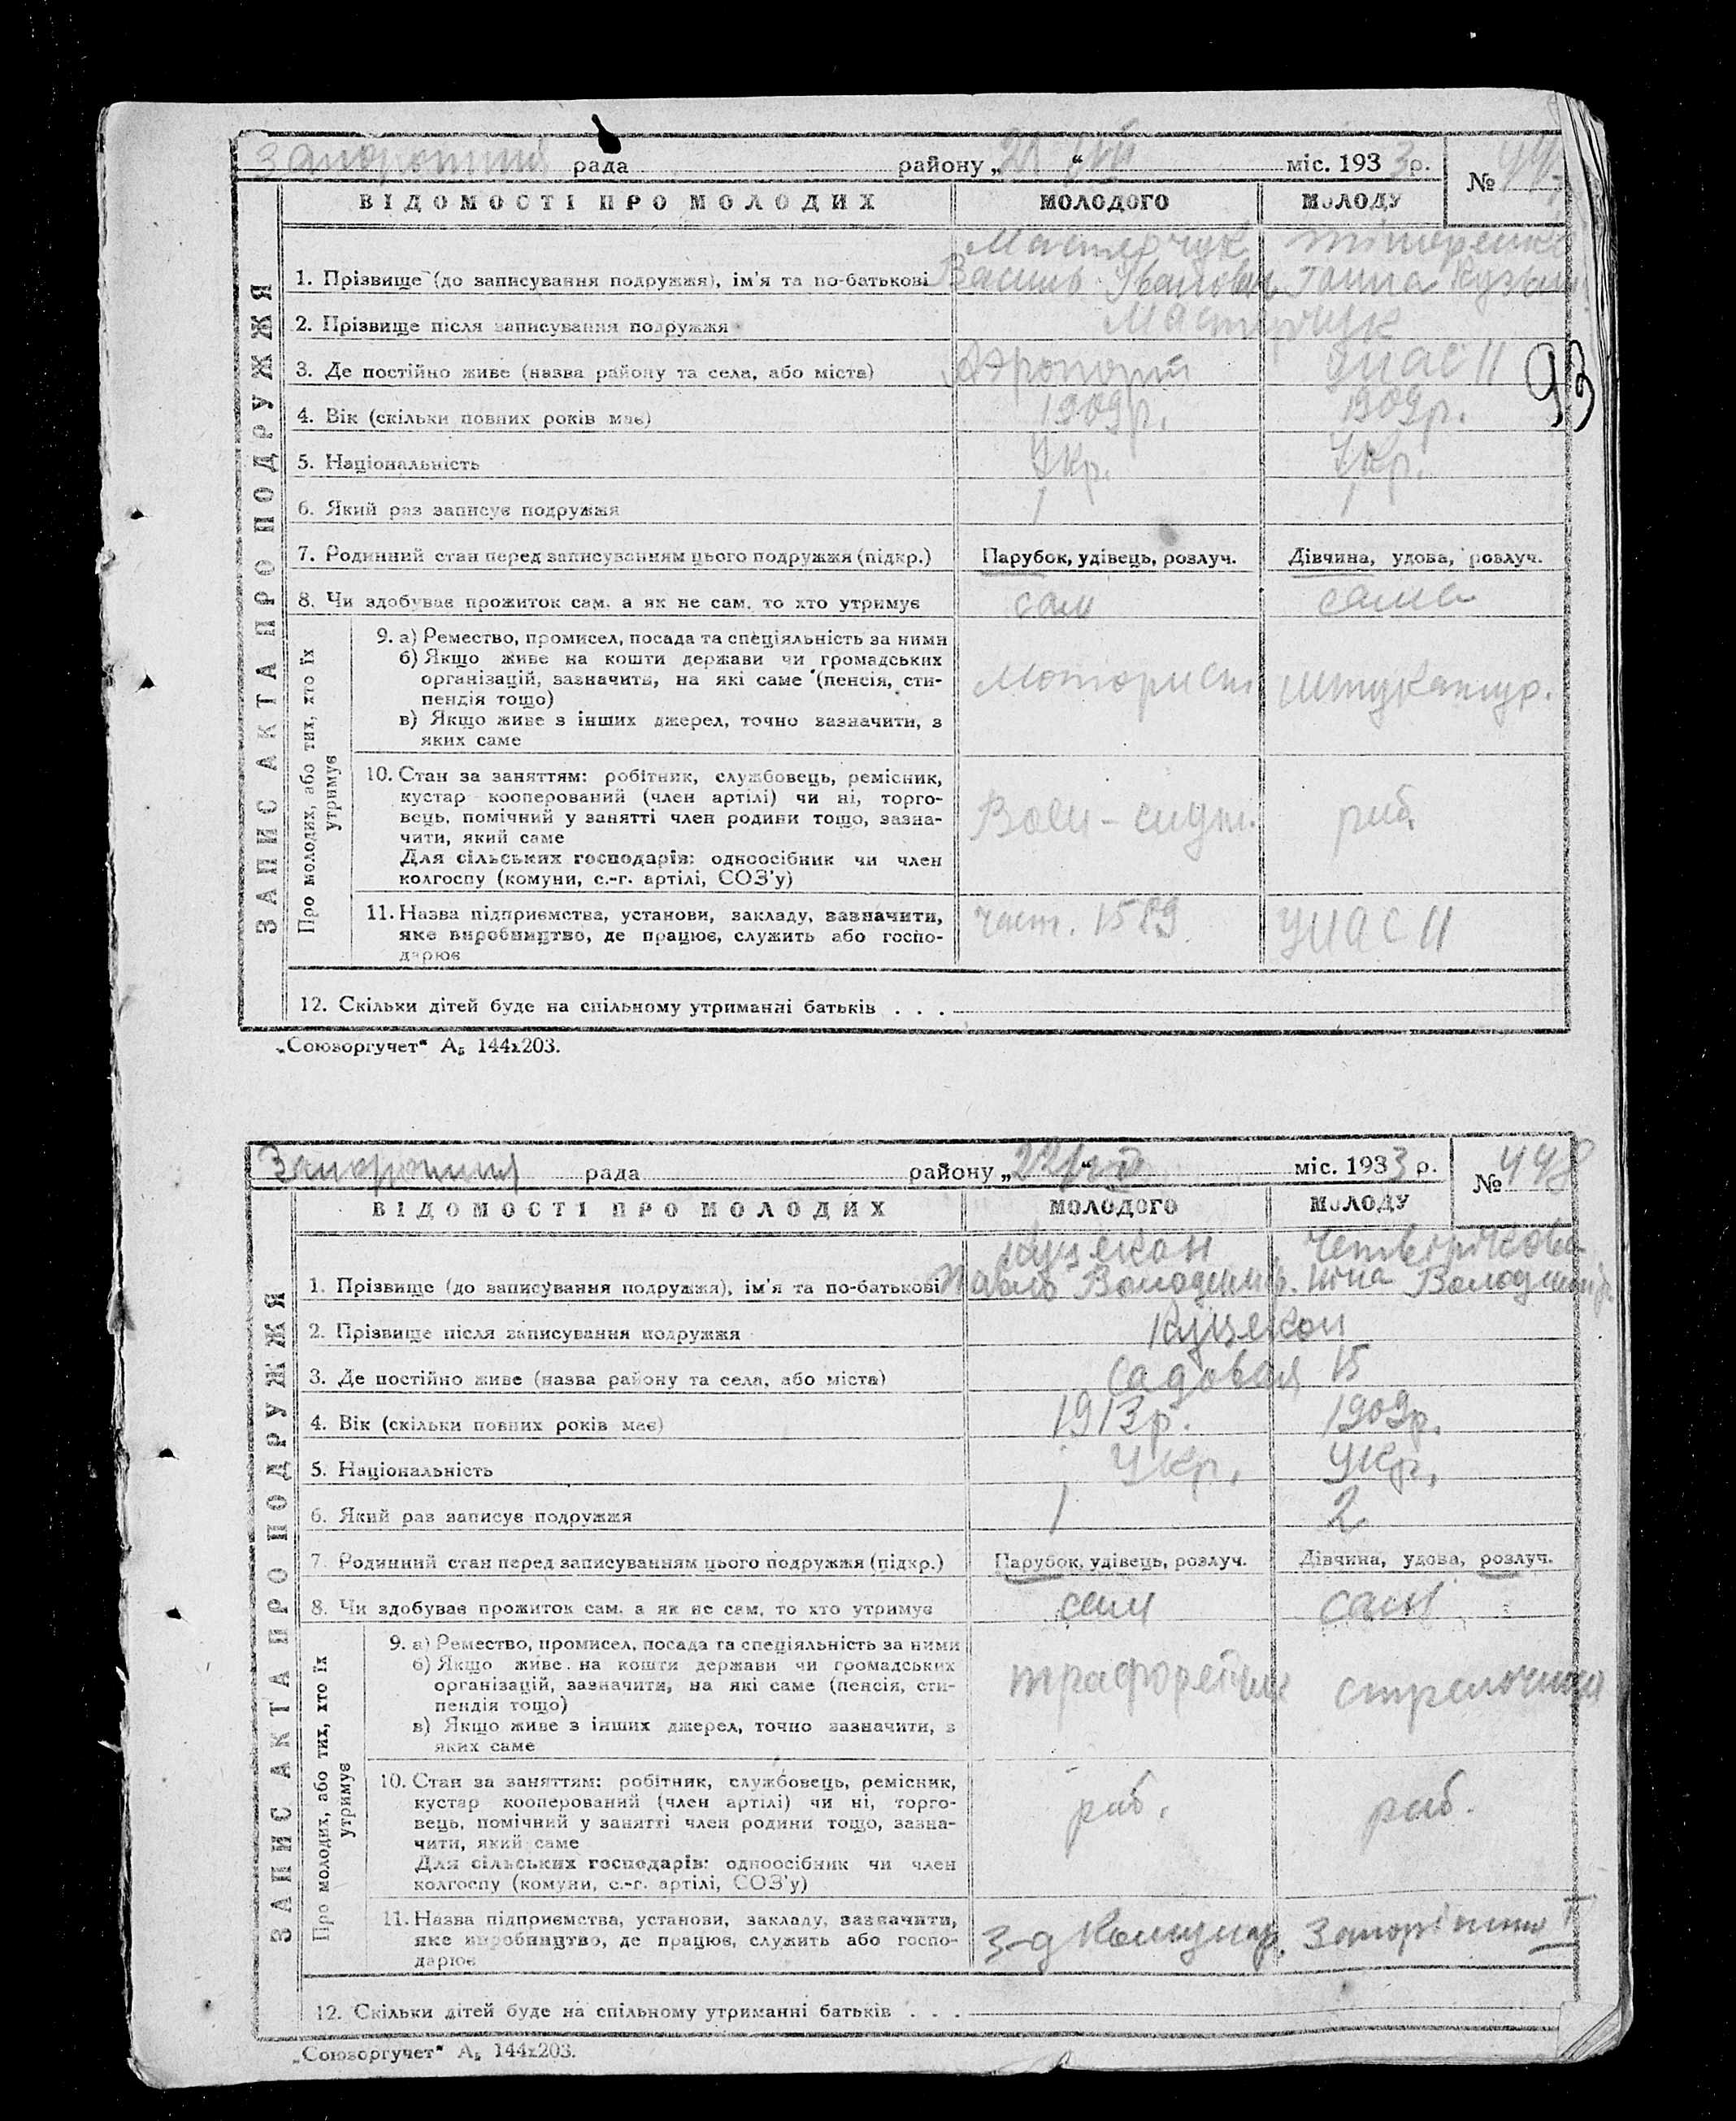 Запоріжжя рада району „21 VII“ міс. 1933 р.
№ 447
ВІДОМОСТІ ПРО МОЛОДИХ МОЛОДОГО МОЛОДУ
ЗАПИС АКТА ПРО ПОДРУЖЖЯ
Титаренко
1. Прізвище (до записування подружжя), ім'я та по-батькові Василь Іванович Ганна Кузьм.
2. Прізвище після записування подружжя
3. Де постійно живе (назва району та села, або міста) Аэропорт
93
4. Вік (скільки повних років має) 1909р. 1909р.
5. Національність Укр. Укр.
6. Який раз записує подружжя 1 1
7. Родинний стан перед записуванням цього подружжя (підкр.) Парубок, удівець, розлуч. Дівчина, удова, розлуч.
8. Чи здобуває прожиток сам, а як не сам, то хто утримує сам сама
Про молодих, або тих, хто їх
утримує
9. а) Ремество, промисел, посада та спеціяльність за ними
б) Якщо живе на кошти держави чи громадських
організацій, зазначити, на які саме (пенсія, сти-
пендія тощо)
в) Якщо живе з інших джерел, точно зазначити, з
яких саме
Моторист штукатур.
10. Стан за заняттям: робітник, службовець, ремісник,
кустар кооперований (член артілі) чи ні, торго-
вець, помічний у занятті член родини тощо, зазна-
чити, який саме
Для сільських господарів: одноосібник чи член
колгоспу (комуни, с.-г. артілі, СОЗ'у)
роб.
11. Назва підприємства, установи, закладу, зазначити,
яке виробництво, де працює, служить або госпо-
дарює
част. 1589
12. Скільки дітей буде на спільному утриманні батьків . . .
„Союзоргучет“ А₅ 144х203.
Запоріжжя рада району „22 “ міс. 1933 р.
№ 448
ВІДОМОСТІ ПРО МОЛОДИХ МОЛОДОГО МОЛОДУ
ЗАПИС АКТА ПРО ПОДРУЖЖЯ
Четверікова
1. Прізвище (до записування подружжя), ім'я та по-батькові Павло Володимир. Ніна Володимір.
2. Прізвище після записування подружжя
3. Де постійно живе (назва району та села, або міста) Садовая 15
4. Вік (скільки повних років має) 1913р. 1909р.
5. Національність Укр. Укр.
6. Який раз записує подружжя 1 2
7. Родинний стан перед записуванням цього подружжя (підкр.) Парубок, удівець, розлуч. Дівчина, удова, розлуч.
8. Чи здобуває прожиток сам, а як не сам, то хто утримує сам сам
Про молодих, або тих, хто їх
утримує
9. а) Ремество, промисел, посада та спеціяльність за ними
б) Якщо живе на кошти держави чи громадських
організацій, зазначити, на які саме (пенсія, сти-
пендія тощо)
в) Якщо живе з інших джерел, точно зазначити, з
яких саме
10. Стан за заняттям: робітник, службовець, ремісник,
кустар кооперований (член артілі) чи ні, торго-
вець, помічний у занятті член родини тощо, зазна-
чити, який саме
Для сільських господарів: одноосібник чи член
колгоспу (комуни, с.-г. артілі, СОЗ'у)
роб. роб.
11. Назва підприємства, установи, закладу, зазначити,
яке виробництво, де працює, служить або госпо-
дарює
з-д Комунар. Запоріжжя II
12. Скільки дітей буде на спільному утриманні батьків . . .
„Союзоргучет“ А₅ 144х203.